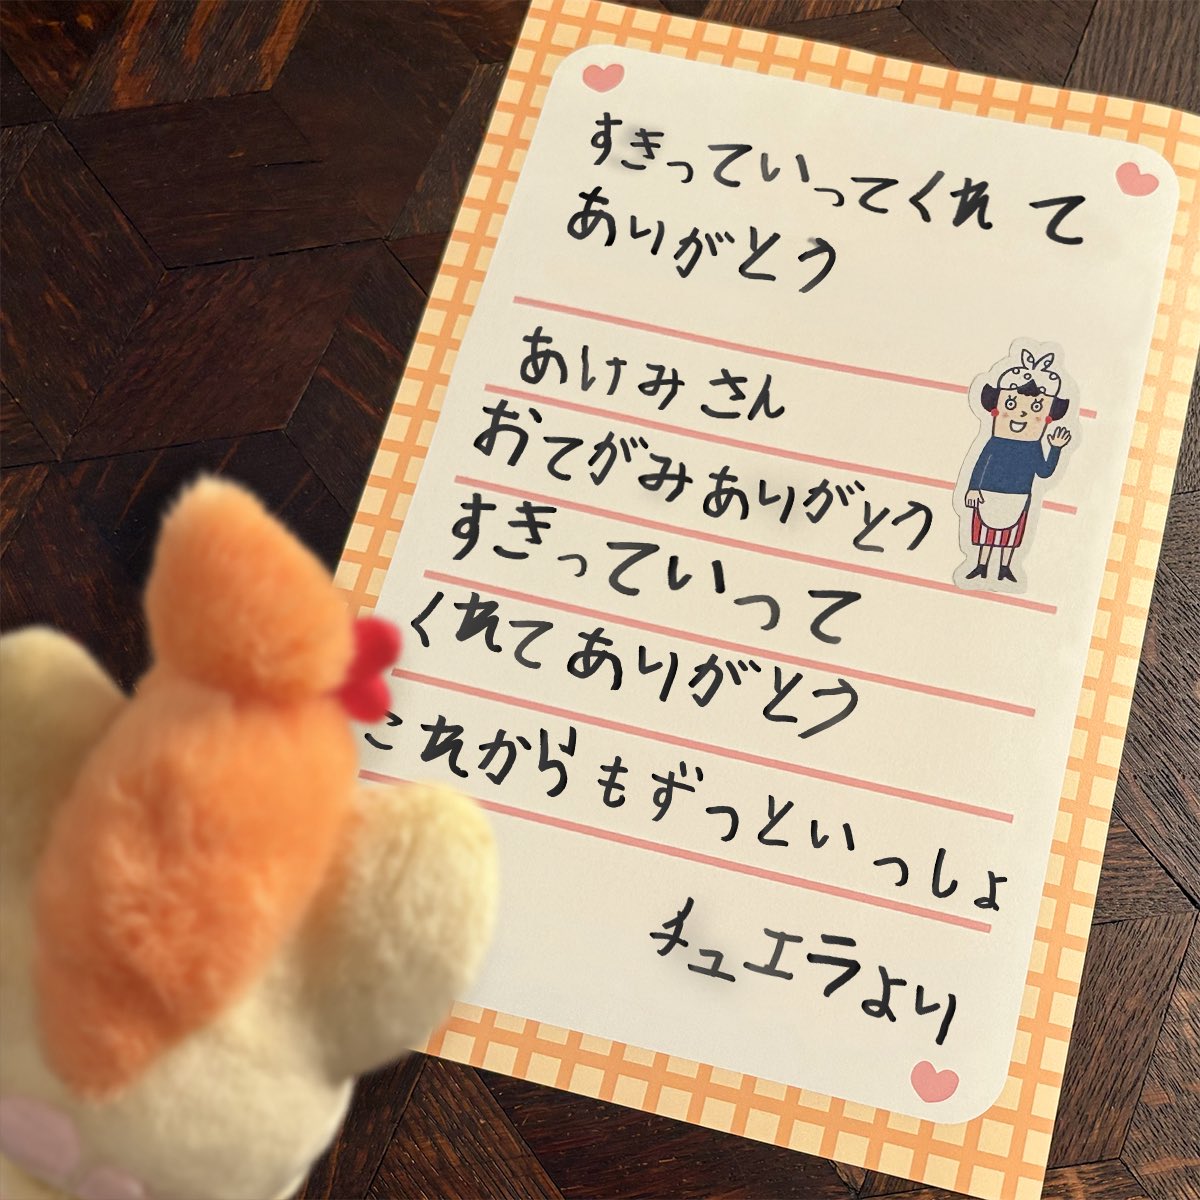 すきっていってくれて
ありがとう
あけみさん
おてがみありがとう
すきっていって
くれてありがとう
これからもずっといっしょ
チュエラより